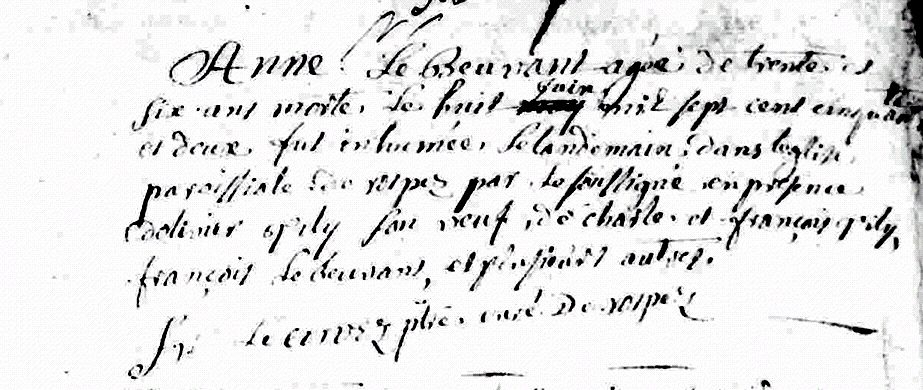 Anne Le Beuvant agée de trente et
six ans morte le huit juin mil sept cent cinquante
et deux fut inhumée le landemain dans leglise
paroissiale de rospez par le soussigné en presence
dolivier son veuf de charle et françois
françois Le Beuvant, et plusieurs autres.
ptre curé de rospez